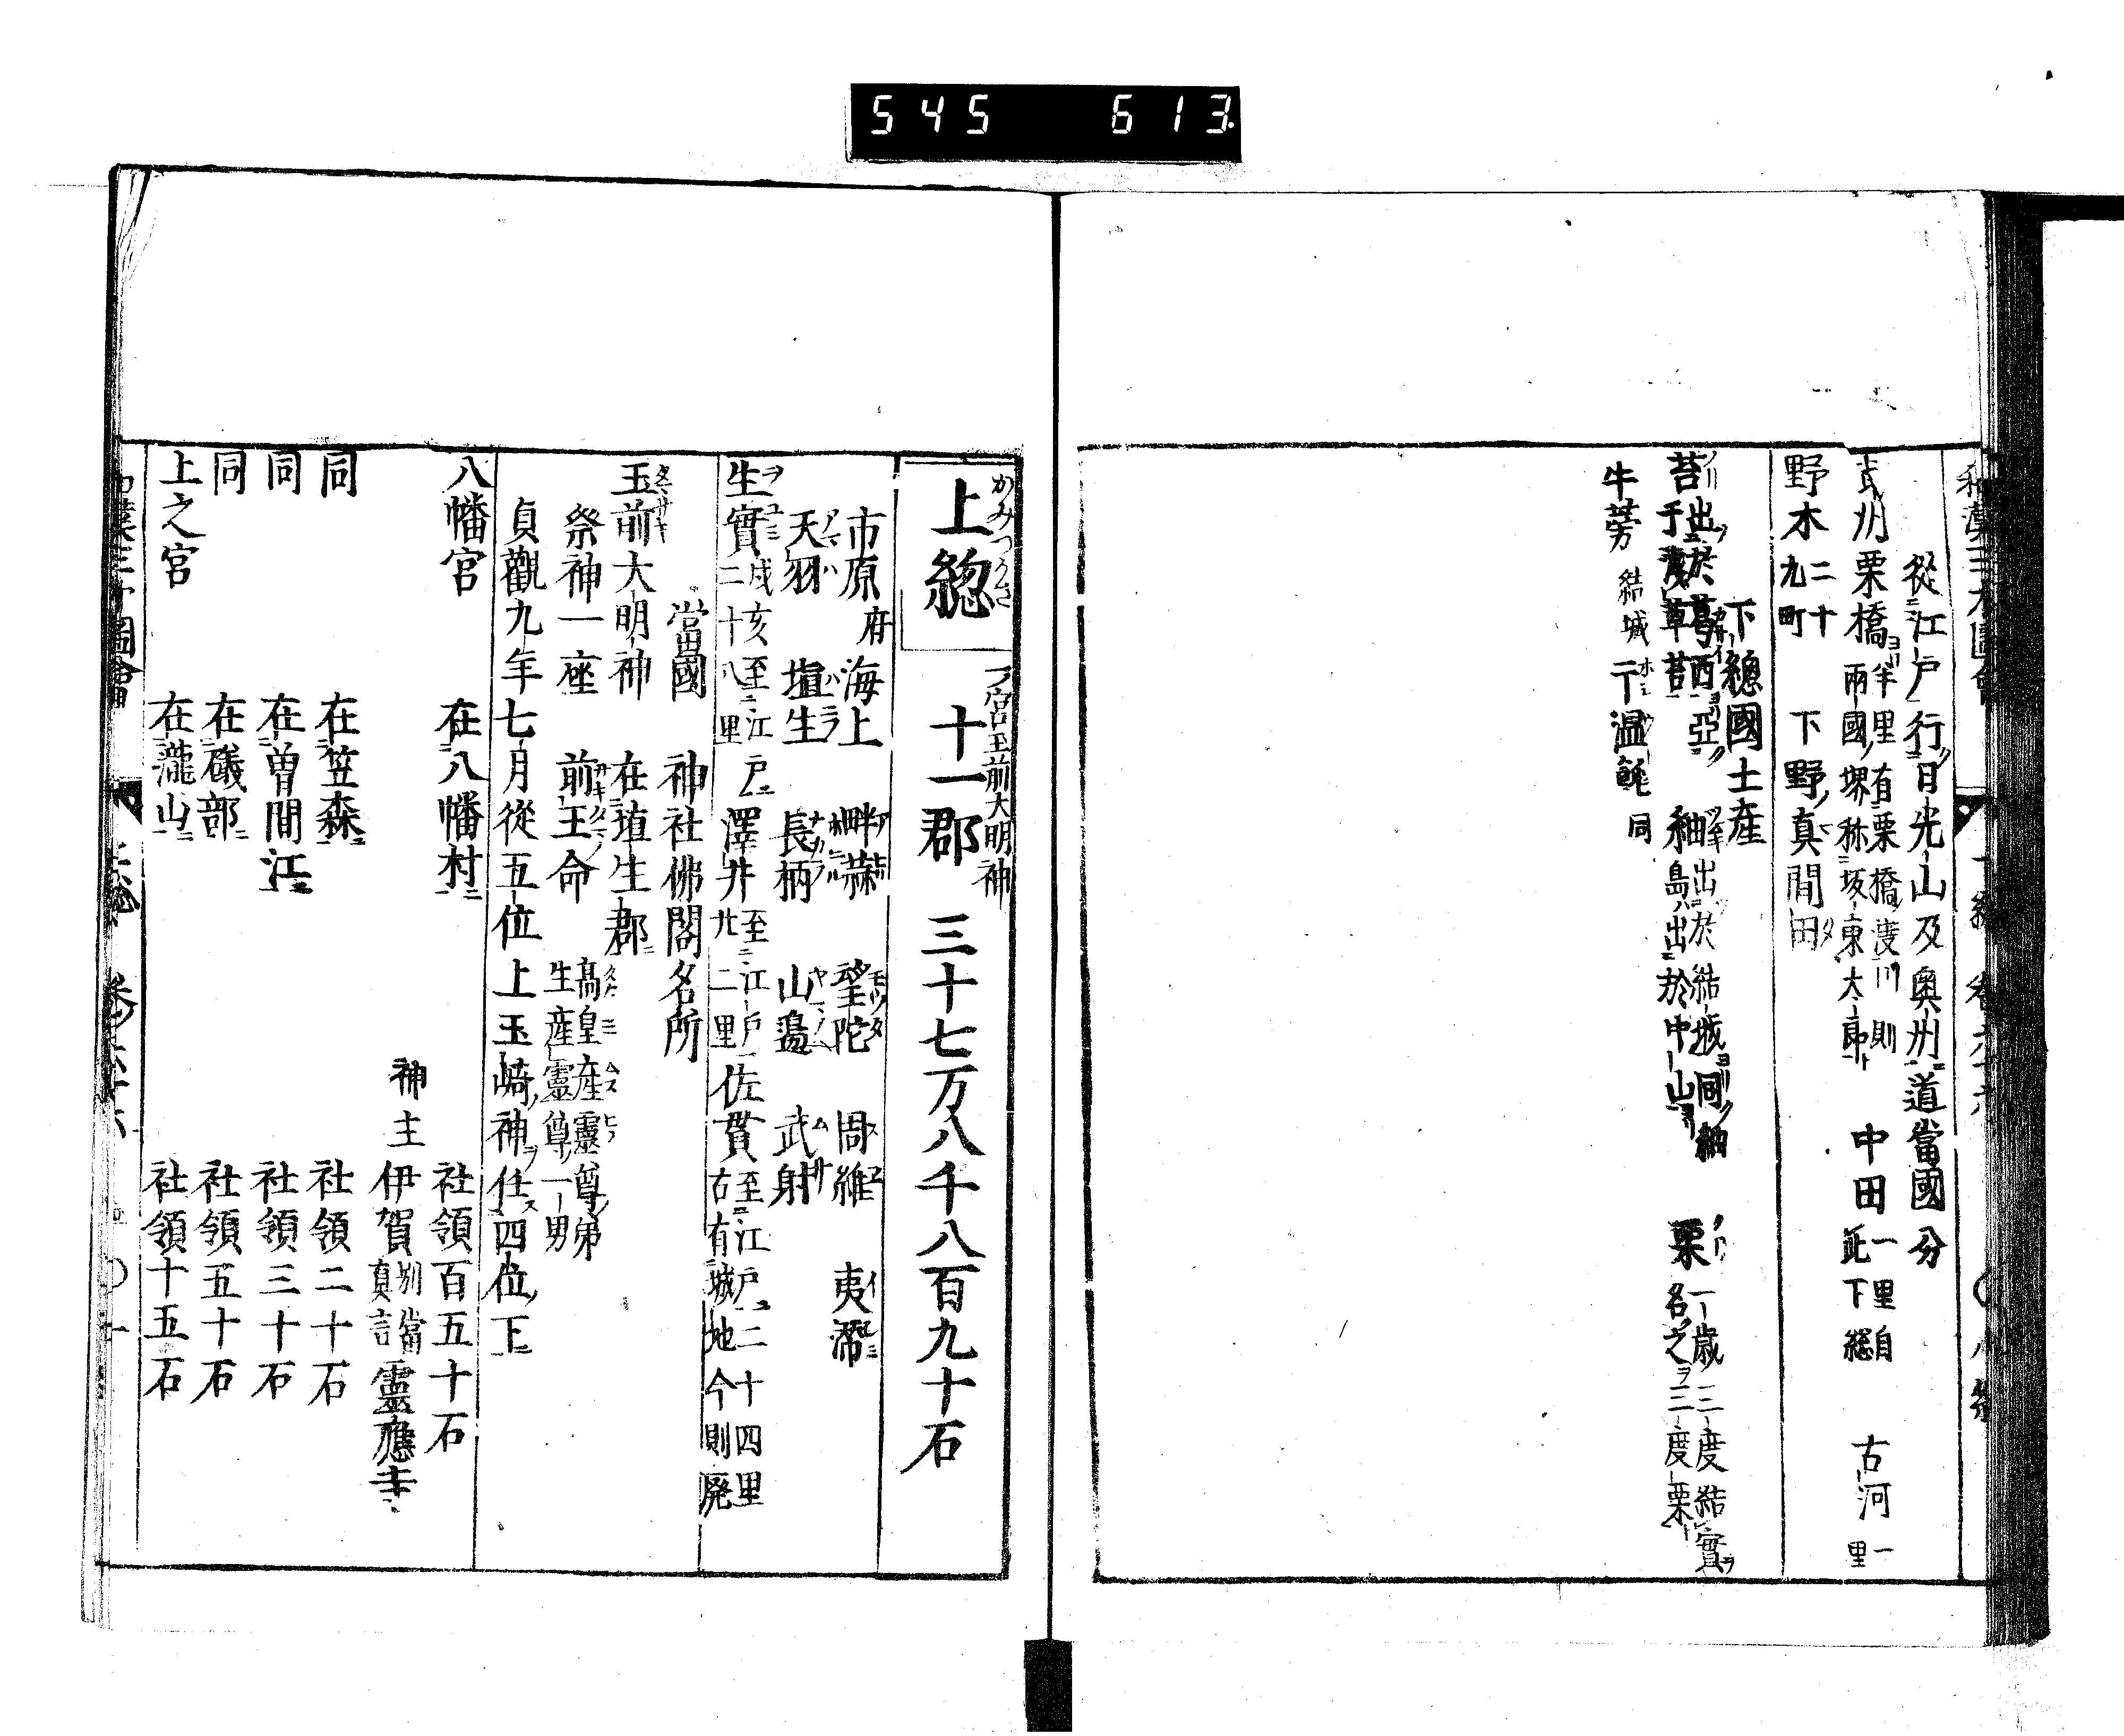 545 613
從江戸行日光山及奥州道當國分
武州栗橋 半里有栗橋渡川則
兩國堺称坂東太郎 中田 一里自
此下總 古河 一里
野木 二十
九町 下野真間田
下總國土産
苔 出於葛西亞
于淺草苔 紬 出於結城同紬
島出於中山 栗 一歳三度結實
名之三度栗
牛蒡 結城 干温飩 同
かみつふさ
上總 十一郡 三十七万八千八百九十石
一宮玉前大明神
市原 府 海上 畔蒜 望陀 周維 夷灊
天羽 埴生 長柄 山邊 武射
生實 戌亥至江戸
二十八里 澤井 至江戸
廿二里 佐貫 至江戸二十四里
古有城地今則廃
當國 神社佛閣名所
玉前大明神 在埴生郡
祭神一座 前玉命 高皇産靈尊弟
生産靈尊一男
貞觀九年七月從五位上玉崎神任四位下
八幡宮 在八幡村 社領百五十石
神主 伊賀 別當
真言 靈應寺
同 在笠森 社領二十石
同 在曽間江 社領三十石
同 在礒部 社領五十石
上之宮 在瀧山 社領十五石